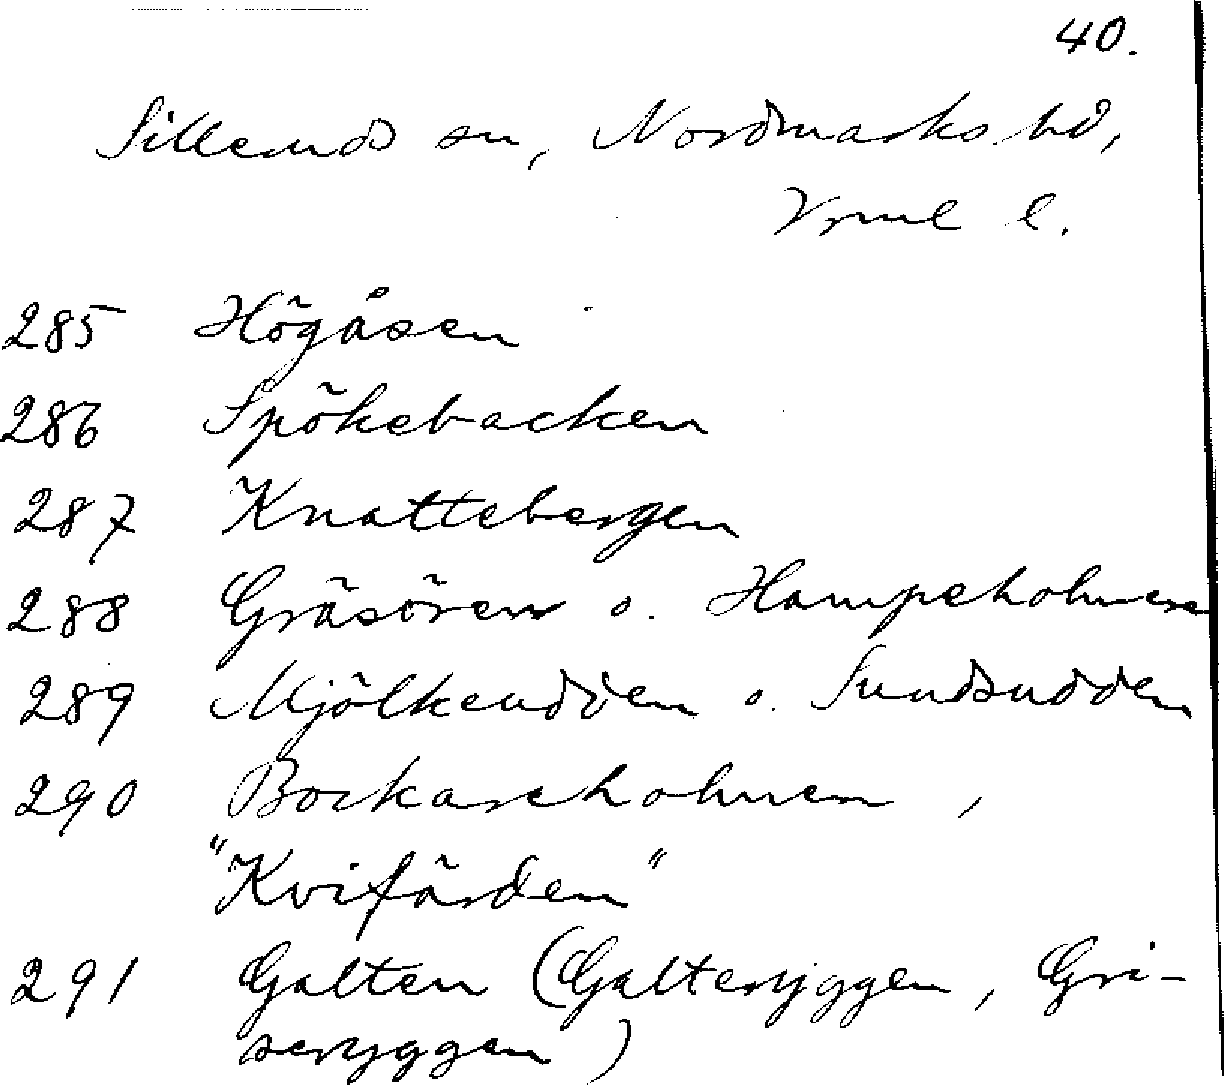 40.
Silleruds sn, Nordmarks hd,
Vrml l.
285 Högåsen
286 Spökebacken
287 Knattebergen
288 Gräsören o. Hampeholmen
289 Mjölkeudden o. Sundsudden
290 Bockareholmen,
"Kvifärden"
291 Galten (Galteryggen, Gri-
seryggen)